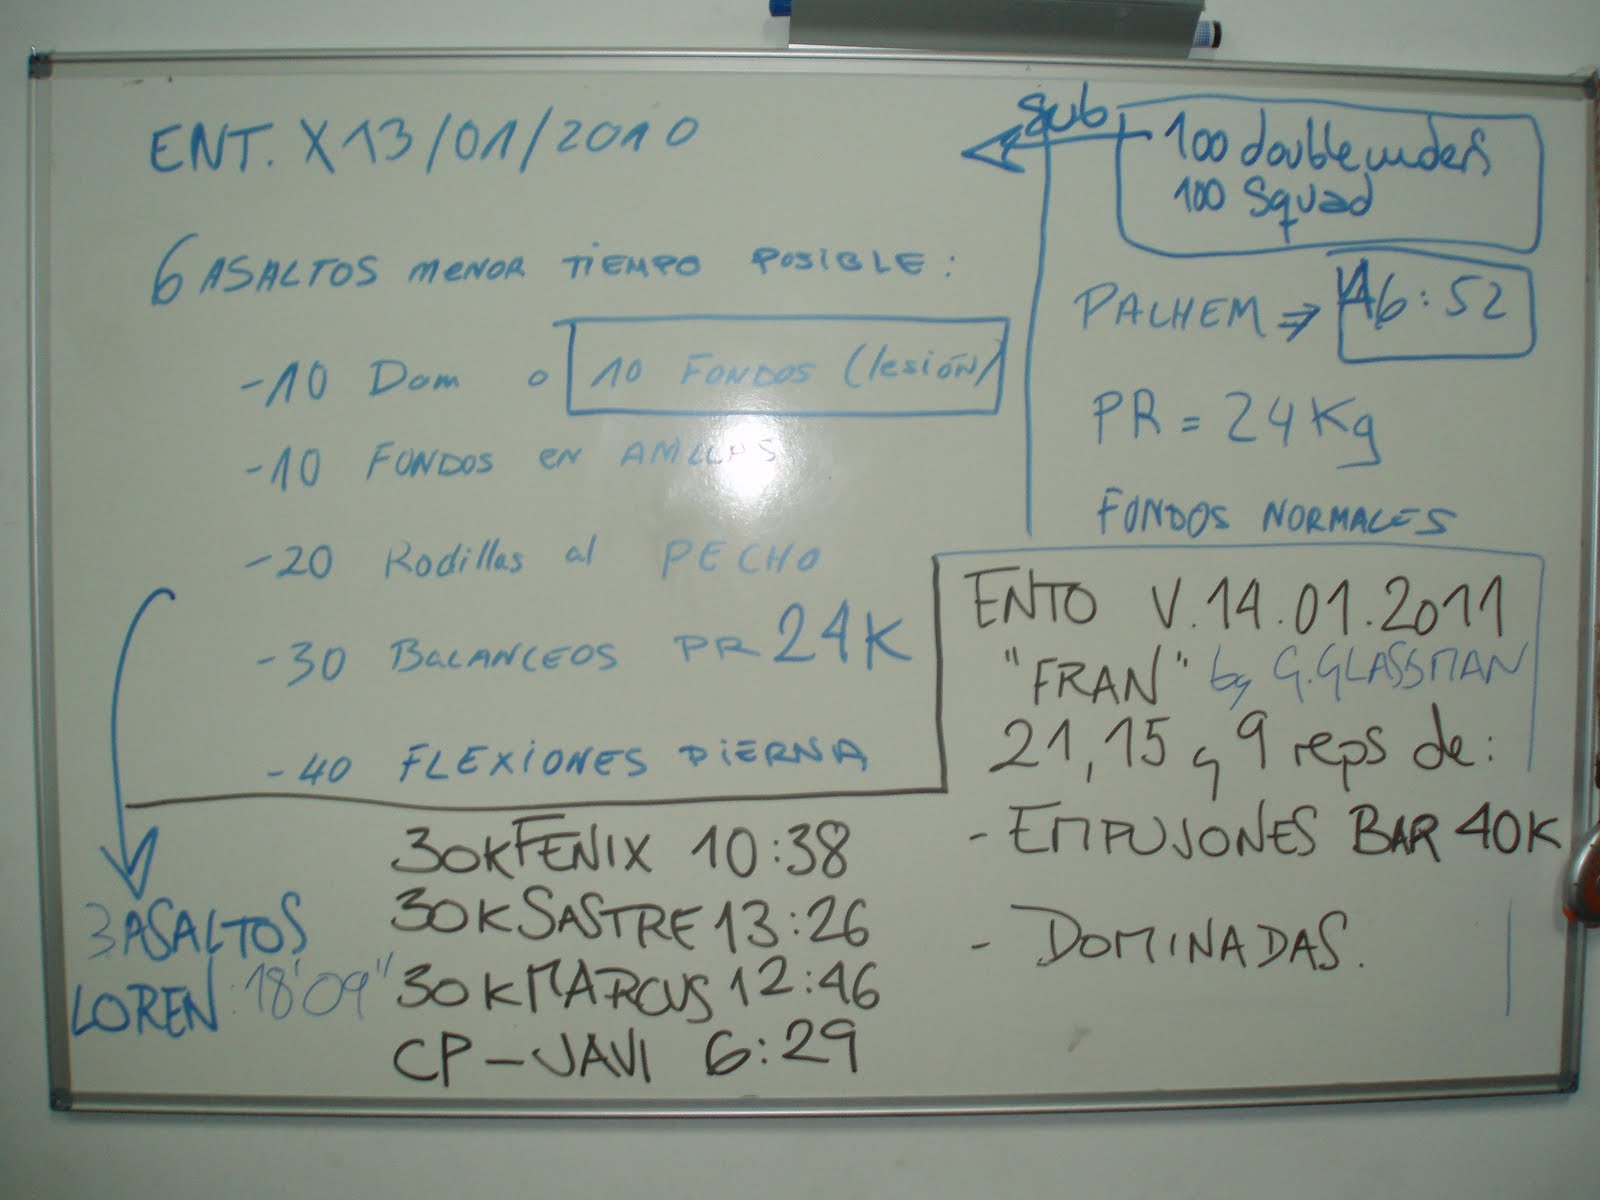 ENT. X 13/01/2010
6 ASALTOS MENOR TIEMPO POSIBLE:
-10 Dom o 10 FONDOS (lesión)
-10 FONDOS en ANILLAS
-20 Rodillas al PECHO
-30 BALANCEOS PR 24K
-40 FLEXIONES PIERNA
3 ASALTOS
LOREN: 18'09"
sub
100 doubleunders
100 Squad
PALHEM ⇒ 16:52
PR = 24 Kg
FONDOS NORMALES
ENTO V. 14.01.2011
"FRAN" by G. GLASSMAN
21, 15 y 9 reps de:
- EMPUJONES BAR 40K
- DOMINADAS.
30K FENIX 10:38
30K SASTRE 13:26
30K MARCUS 12:46
CP - JAVI 6:29